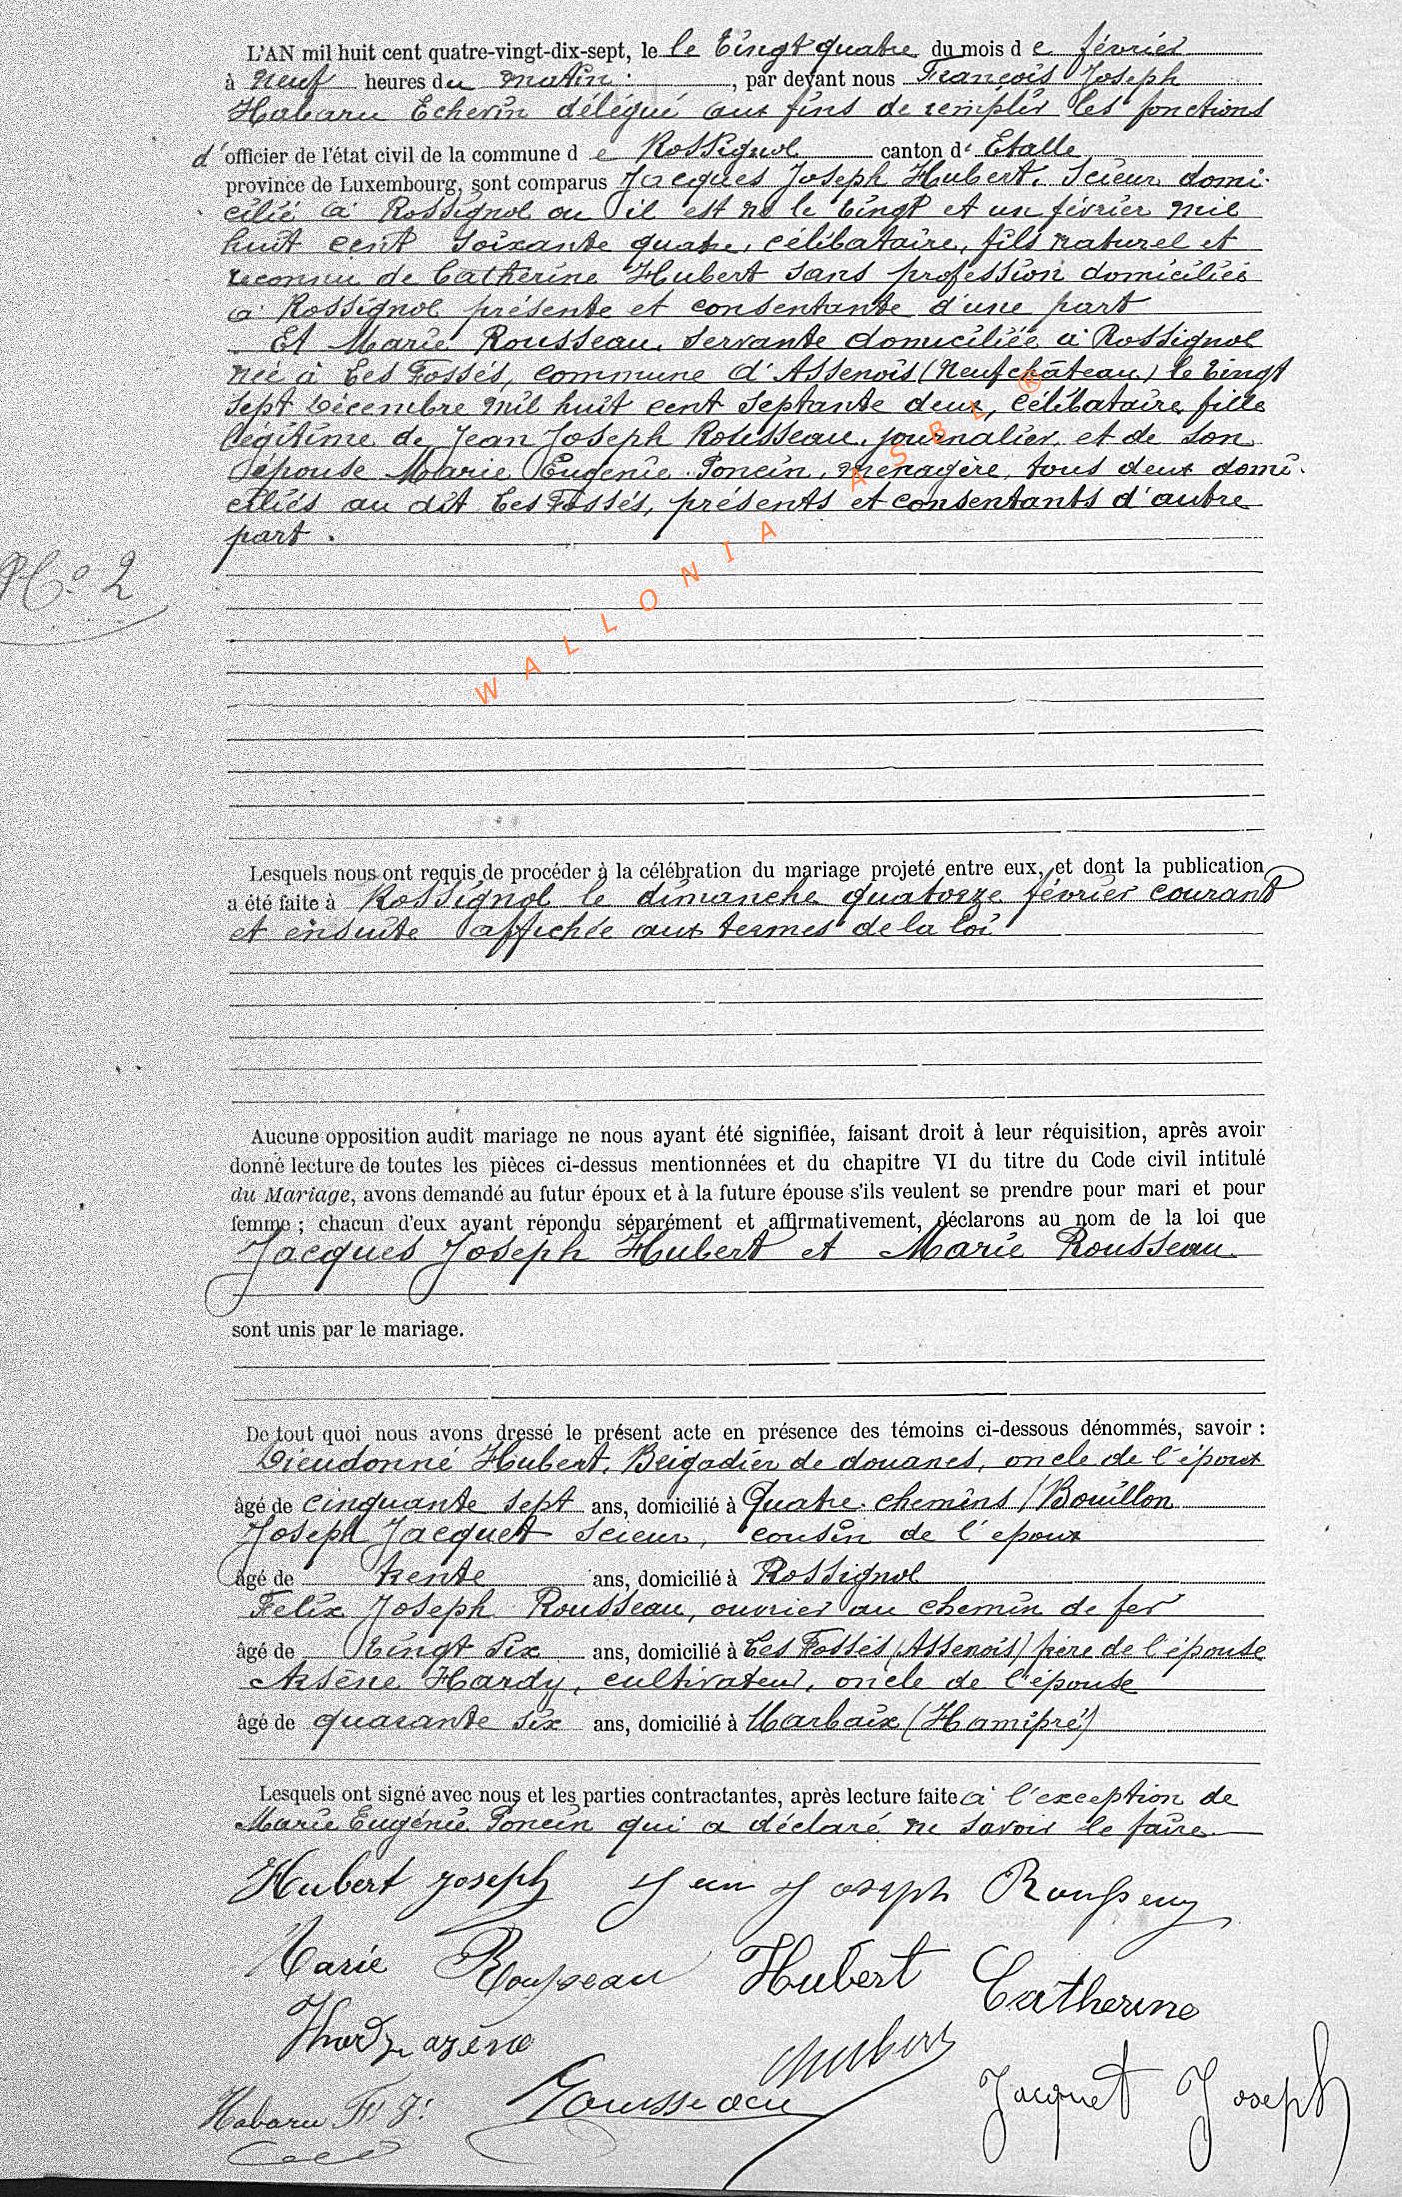 L'AN mil huit cent quatre-vingt-dix-sept, le le Vingt quatre du mois d e février
à neuf heures du matin , par devant nous François Joseph
Habaru Echevin délégué aux fins de remplir les fonctions
d'officier de l'état civil de la commune d e Rossignol canton d' Etalle
province de Luxembourg, sont comparus Jacques Joseph Hubert, Scieur domi-
cilié à Rossignol où il est né le vingt et un février mil
huit cent soixante quatre, célibataire, fils naturel et
reconnu de Catherine Hubert sans profession domiciliée
à Rossignol présente et consentante d'une part
Et Marie Rousseau, servante domiciliée à Rossignol
née à Les Fossés, commune d'Assenois (Neufchâteau) le vingt
sept Décembre mil huit cent septante deux, célibataire, fille
légitime de Jean Joseph Rousseau, journalier et de son
épouse Marie Eugénie Poncin, menagère, tous deux domi-
ciliés au dit Les Fossés, présents et consentants d'autre
part.
No. 2
WALLONIA ASBL ®
Lesquels nous ont requis de procéder à la célébration du mariage projeté entre eux, et dont la publication
a été faite à Rossignol le dimanche quatorze février courant
et ensuite affichée aux termes de la loi
Aucune opposition audit mariage ne nous ayant été signifiée, faisant droit à leur réquisition, après avoir
donné lecture de toutes les pièces ci-dessus mentionnées et du chapitre VI du titre du Code civil intitulé
du Mariage, avons demandé au futur époux et à la future épouse s'ils veulent se prendre pour mari et pour
femme ; chacun d'eux ayant répondu séparément et affirmativement, déclarons au nom de la loi que
Jacques Joseph Hubert et Marie Rousseau
sont unis par le mariage.
De tout quoi nous avons dressé le présent acte en présence des témoins ci-dessous dénommés, savoir :
Dieudonné Hubert, Brigadier de douanes, oncle de l'époux
âgé de cinquante sept ans, domicilié à Quatre-chemins (Bouillon
Joseph Jacquet scieur, cousin de l'epoux
âgé de trente ans, domicilié à Rossignol
Felix Joseph Rousseau, ouvrier au chemin de fer
âgé de Vingt six ans, domicilié à Les Fossés (Assenois) frère de l'épouse
Arsène Hardy, cultivateur, oncle de l'épouse
âgé de quarante six ans, domicilié à Marbaix (Hamipré)
Lesquels ont signé avec nous et les parties contractantes, après lecture faite à l'exception de
Marie Eugénie Poncin qui a déclaré ne savoir le faire
Hubert joseph Jean Joseph Rousseau
Marie Rousseau Hubert Catherine
Hardy arsène Hubert
Habaru F. J. Rousseau Jacquet Joseph